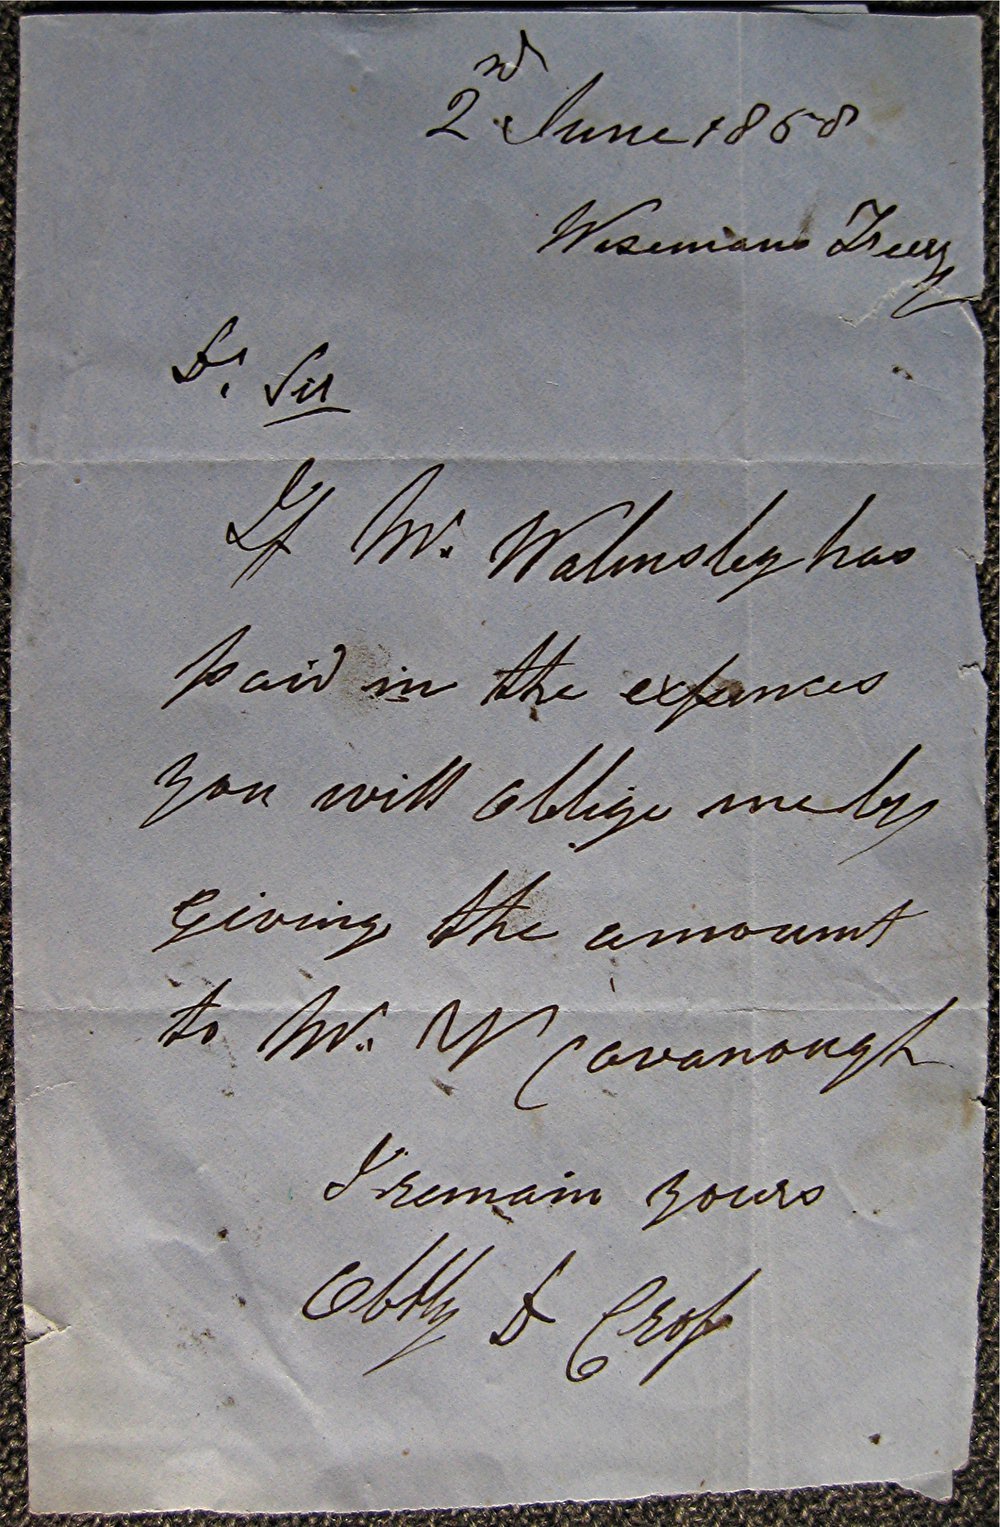 2nd June 1858
Wisemans Freey
Dr. Sir
If Mr. Walmsley has
paid in the expences
you will oblige me by
giving the amount
to Mr. Cavanough
I remain yours
Obtly D Crop